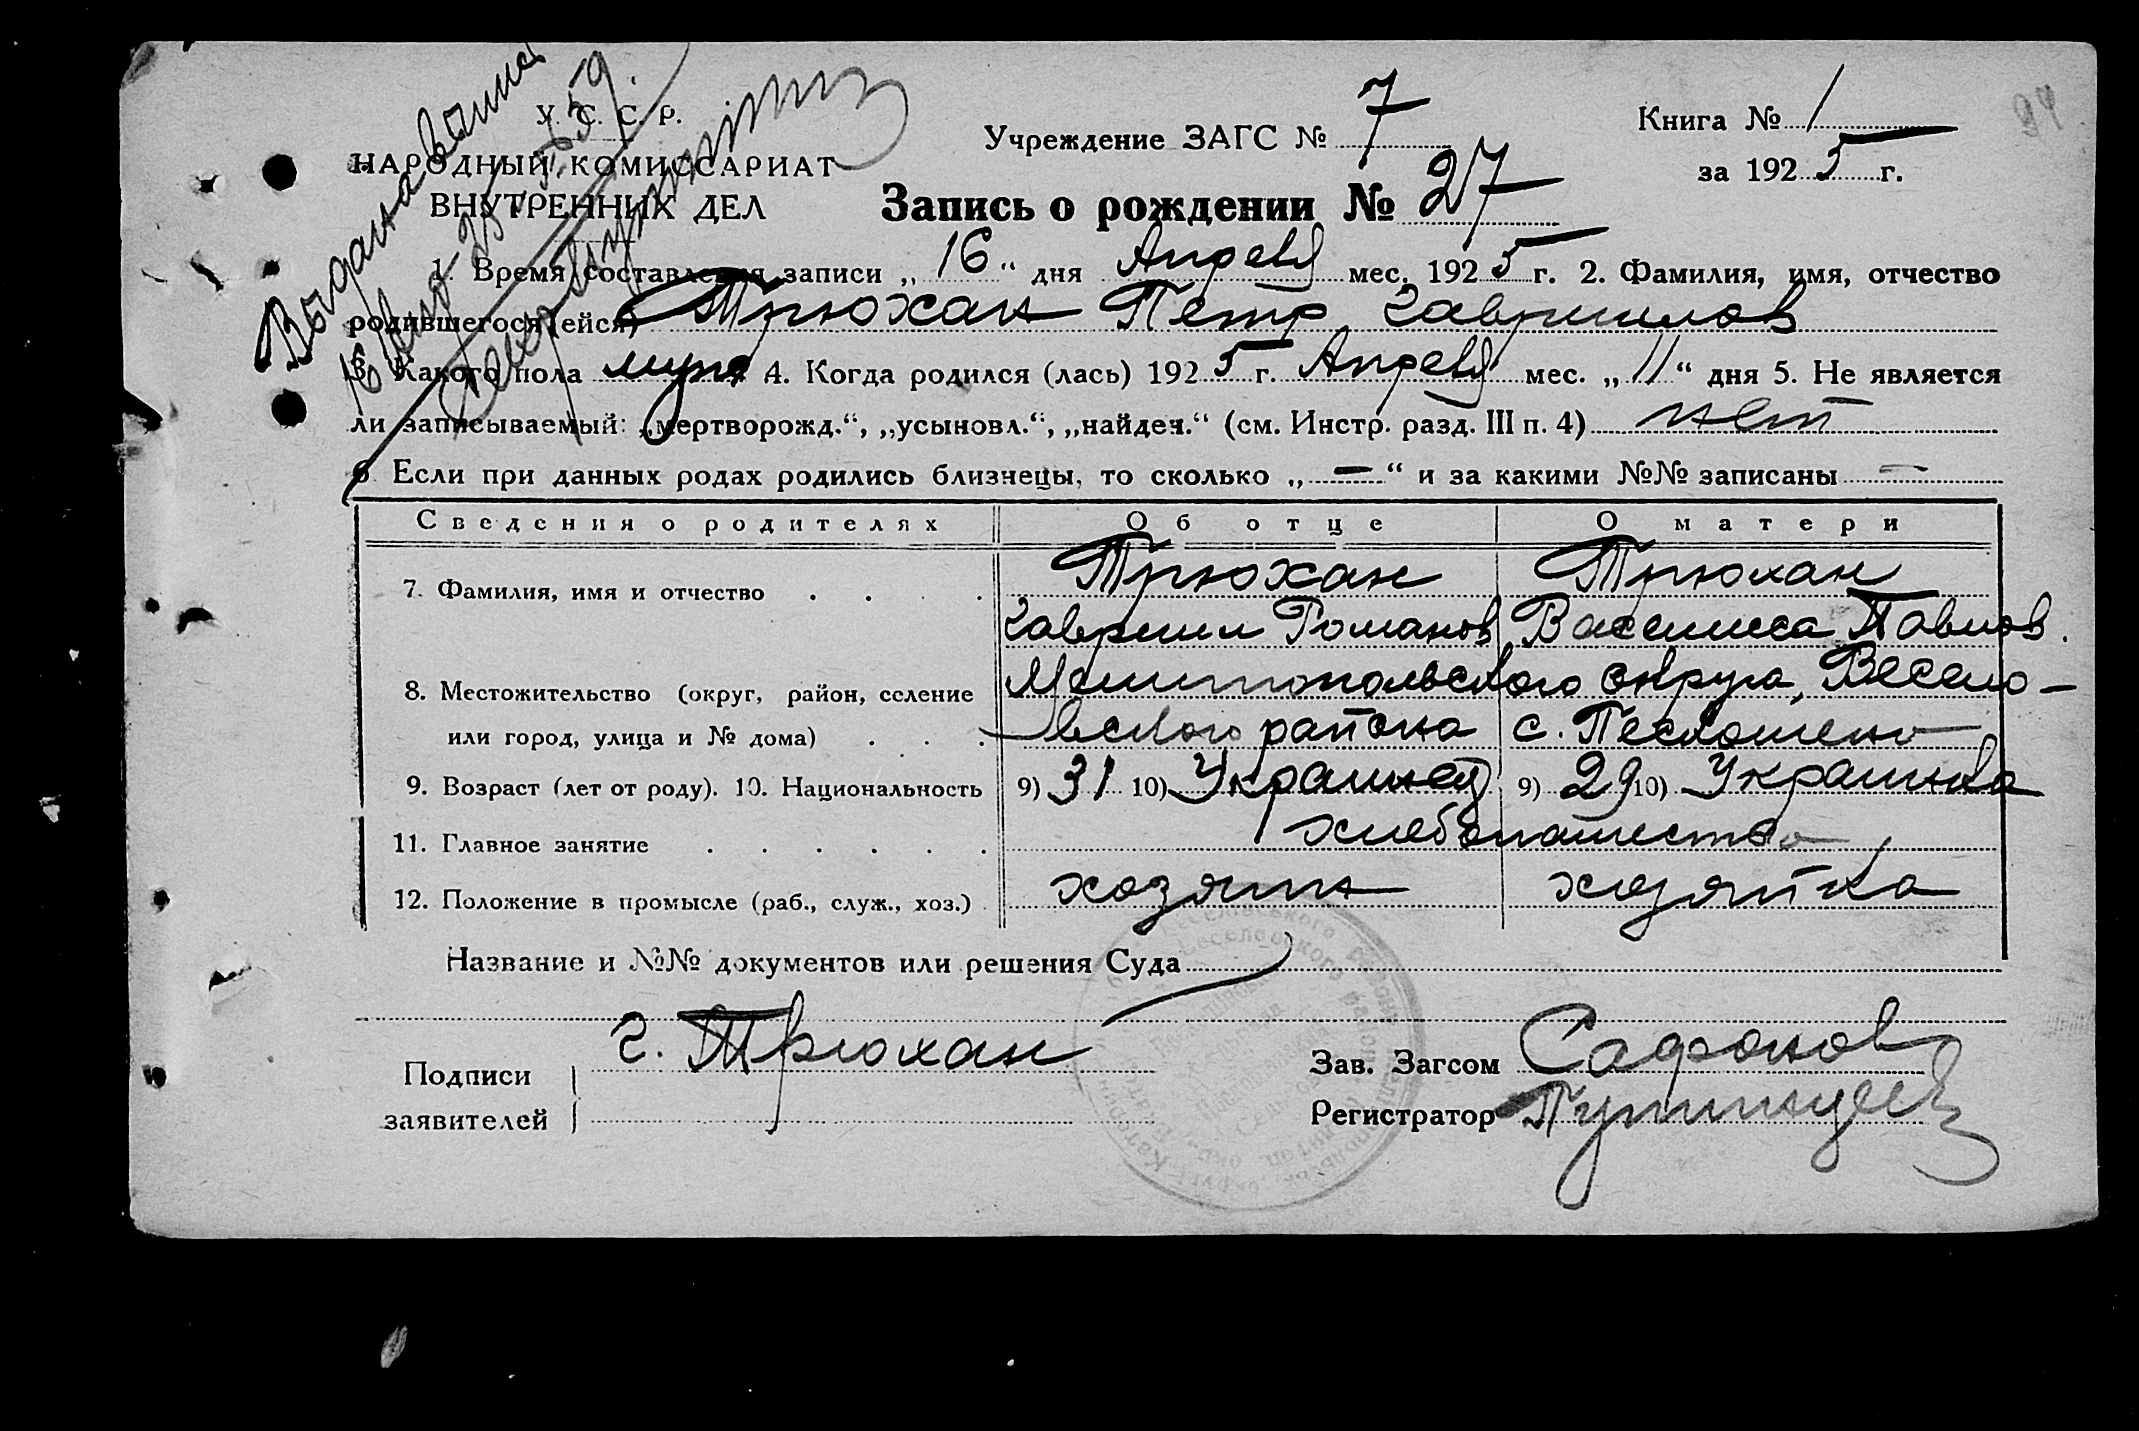 Выдана выпись
У. С. С. Р.
НАРОДНЫЙ КОМИССАРИАТ
ВНУТРЕННИХ ДЕЛ
Учреждение ЗАГС № 7
Книга № 1
за 1925 г.
94
Запись о рождении № 27
1. Время составления записи „16“ дня Апреля мес. 1925 г. 2. Фамилия, имя, отчество
родившегося (ейся) Трюхан Петр Гаврилов
3. Какого пола муж 4. Когда родился (лась) 1925 г. Апреля мес. „11“ дня 5. Не является
ли записываемый: „мертворожд.“, „усыновл.“, „найден.“ (см. Инстр. разд. III п. 4) нет
6. Если при данных родах родились близнецы, то сколько „—“ и за какими №№ записаны —
Сведения о родителях Об отце О матери
7. Фамилия, имя и отчество . . . . Трюхан Трюхан
Гаврилл Романов Василиса Павлов.
8. Местожительство (округ, район, селение Мелитопольского округа, Весело-
или город, улица и № дома) . . . вского района с.
9. Возраст (лет от роду). 10. Национальность 9) 31 10) Украинец 9) 29 10) Украинка
11. Главное занятие . . . . . . хлебопашество
12. Положение в промысле (раб., служ., хоз.) хозяин хозяйка
Название и №№ документов или решения Суда
Подписи Г. Трюхан
заявителей
Зав. Загсом Сафонов
Регистратор